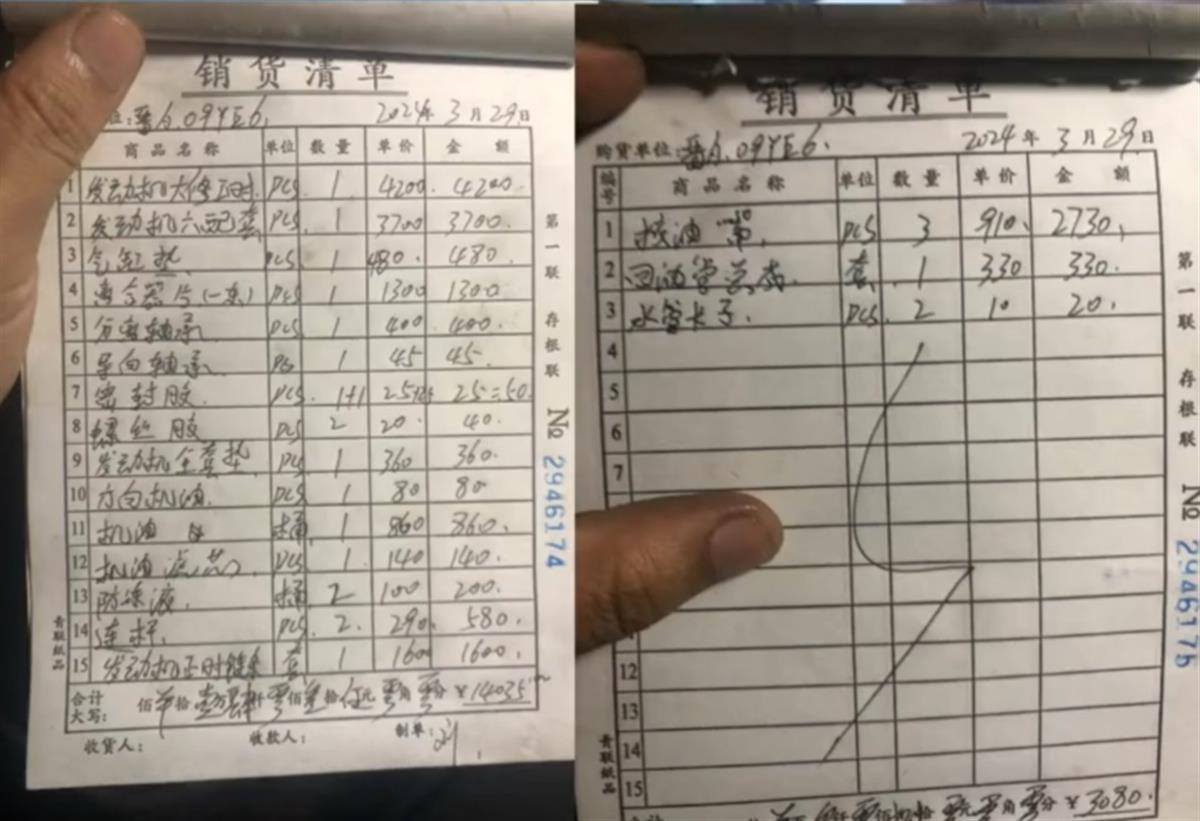 销货清单
位:晋A.09YE6. 2024年3月29日
商品名称 单位 数量 单价 金额
1 发动机大修工时. PCS. 1 4200. 4200
2 发动机六配套 PCS. 1 3700 3700.
3 气缸垫. PCS. 1 480. 480.
4 离合器片(一套) PCS 1 1300 1300
5 分离轴承 PCS 1 400 400.
6 导向轴承 PCS 1 45 45.
7 密封胶. PCS. 1+1 25=50.
8 螺丝胶 PCS 2 20. 40.
9 发动机全套垫. PCS. 1 360 360.
10 方向机油. PCS 1 80 80
11 机油 桶. 1 860 860.
12 机油滤芯. PCS 1. 140 140.
13 防冻液. 桶 2 100 200.
14 连杆. PCS. 2. 290. 580.
15 发动机正时链条 套 1 1600 1600.
合计大写: 佰 拾壹万肆仟零佰叁拾伍元零角零分 ¥14035
收货人: 收款人: 制单:刘
第一联 存根联
№ 2946174
青联纸品
销货清单
购货单位:晋A.09YE6. 2024年3月29日
编号 商品名称 单位 数量 单价 金额
1 PCS 3 910. 2730.
2 回油管总成. 套. 1 330 330.
3 水管卡子. PCS. 2 10 20.
4
5
6
7
12
13
14
15
零角零分 ¥3080.
第一联 存根联
№ 2946175
青联纸品